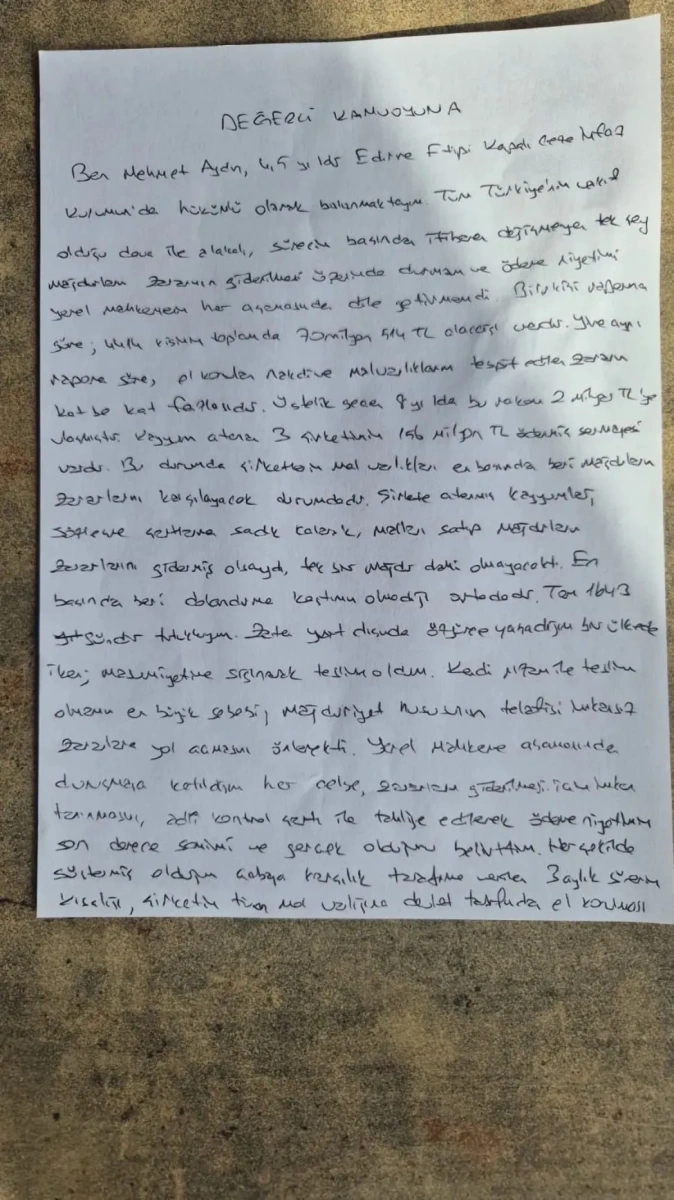 DEĞERLİ KAMUOYUNA
Ben Mehmet Aydın, 4,5 yıldır Edirne F tipi Kapalı Ceza İnfaz
Kurumu'da hükümlü olarak bulunmaktayım. Tüm Türkiye'nin vakıf
olduğu dava ile alakalı, sürecin başından itibaren değişmeyen tek şey
mağdurların zararının giderilmesi üzerinde durmam ve ödeme niyetimi
yerel mahkemenin her aşamasında dile getirmemdi. Bilirkişi raporuna
göre; toplamda TL alacağı vardır. Yine aynı
rapora göre, el konulan nakdi ve malvarlıklarım tespit edilen zararın
kat be kat fazlasıdır. Üstelik geçen yılda bu rakam 2 milyar TL'ye
ulaşmıştır. Kayyum atanan 3 şirketimin 196 milyon TL ödenmiş sermayesi
vardı. Bu durumda şirketlerin mal varlıkları en başından beri mağdurların
zararlarını karşılayacak durumdadır. Şirkete atanmış kayyumlar,
sözleşme şartlarına sadık kalarak, malları satıp mağdurların
zararlarını gidermiş olsaydı, tek bir mağdur dahi olmayacaktı. En
başından beri dolandırma kastımın olmadığı ortadadır. Tam 1643
gündür tutukluyum. Zaten yurt dışında özgürce yaşadığım bir ülkede
iken; masumiyetime sığınarak teslim oldum. Kendi rızam ile teslim
olmamın en büyük sebebi, mağduriyet hususunun telafisi imkansız
zararlara yol açmasını önleyekti. Yerel Mahkeme aşamasında
duruşmaya katıldığım her celse, zararların giderilmesi için imkan
tanınması, adli kontrol şartı ile tahliye edilerek ödeme niyetimin
son derece samimi ve gerçek olduğunu belirttim. Her şekilde
göstermiş olduğum çabaya karşılık tarafıma verilen 3 aylık sürenin
kısalığı, şirketin tüm mal varlığına devlet tarafından el konması